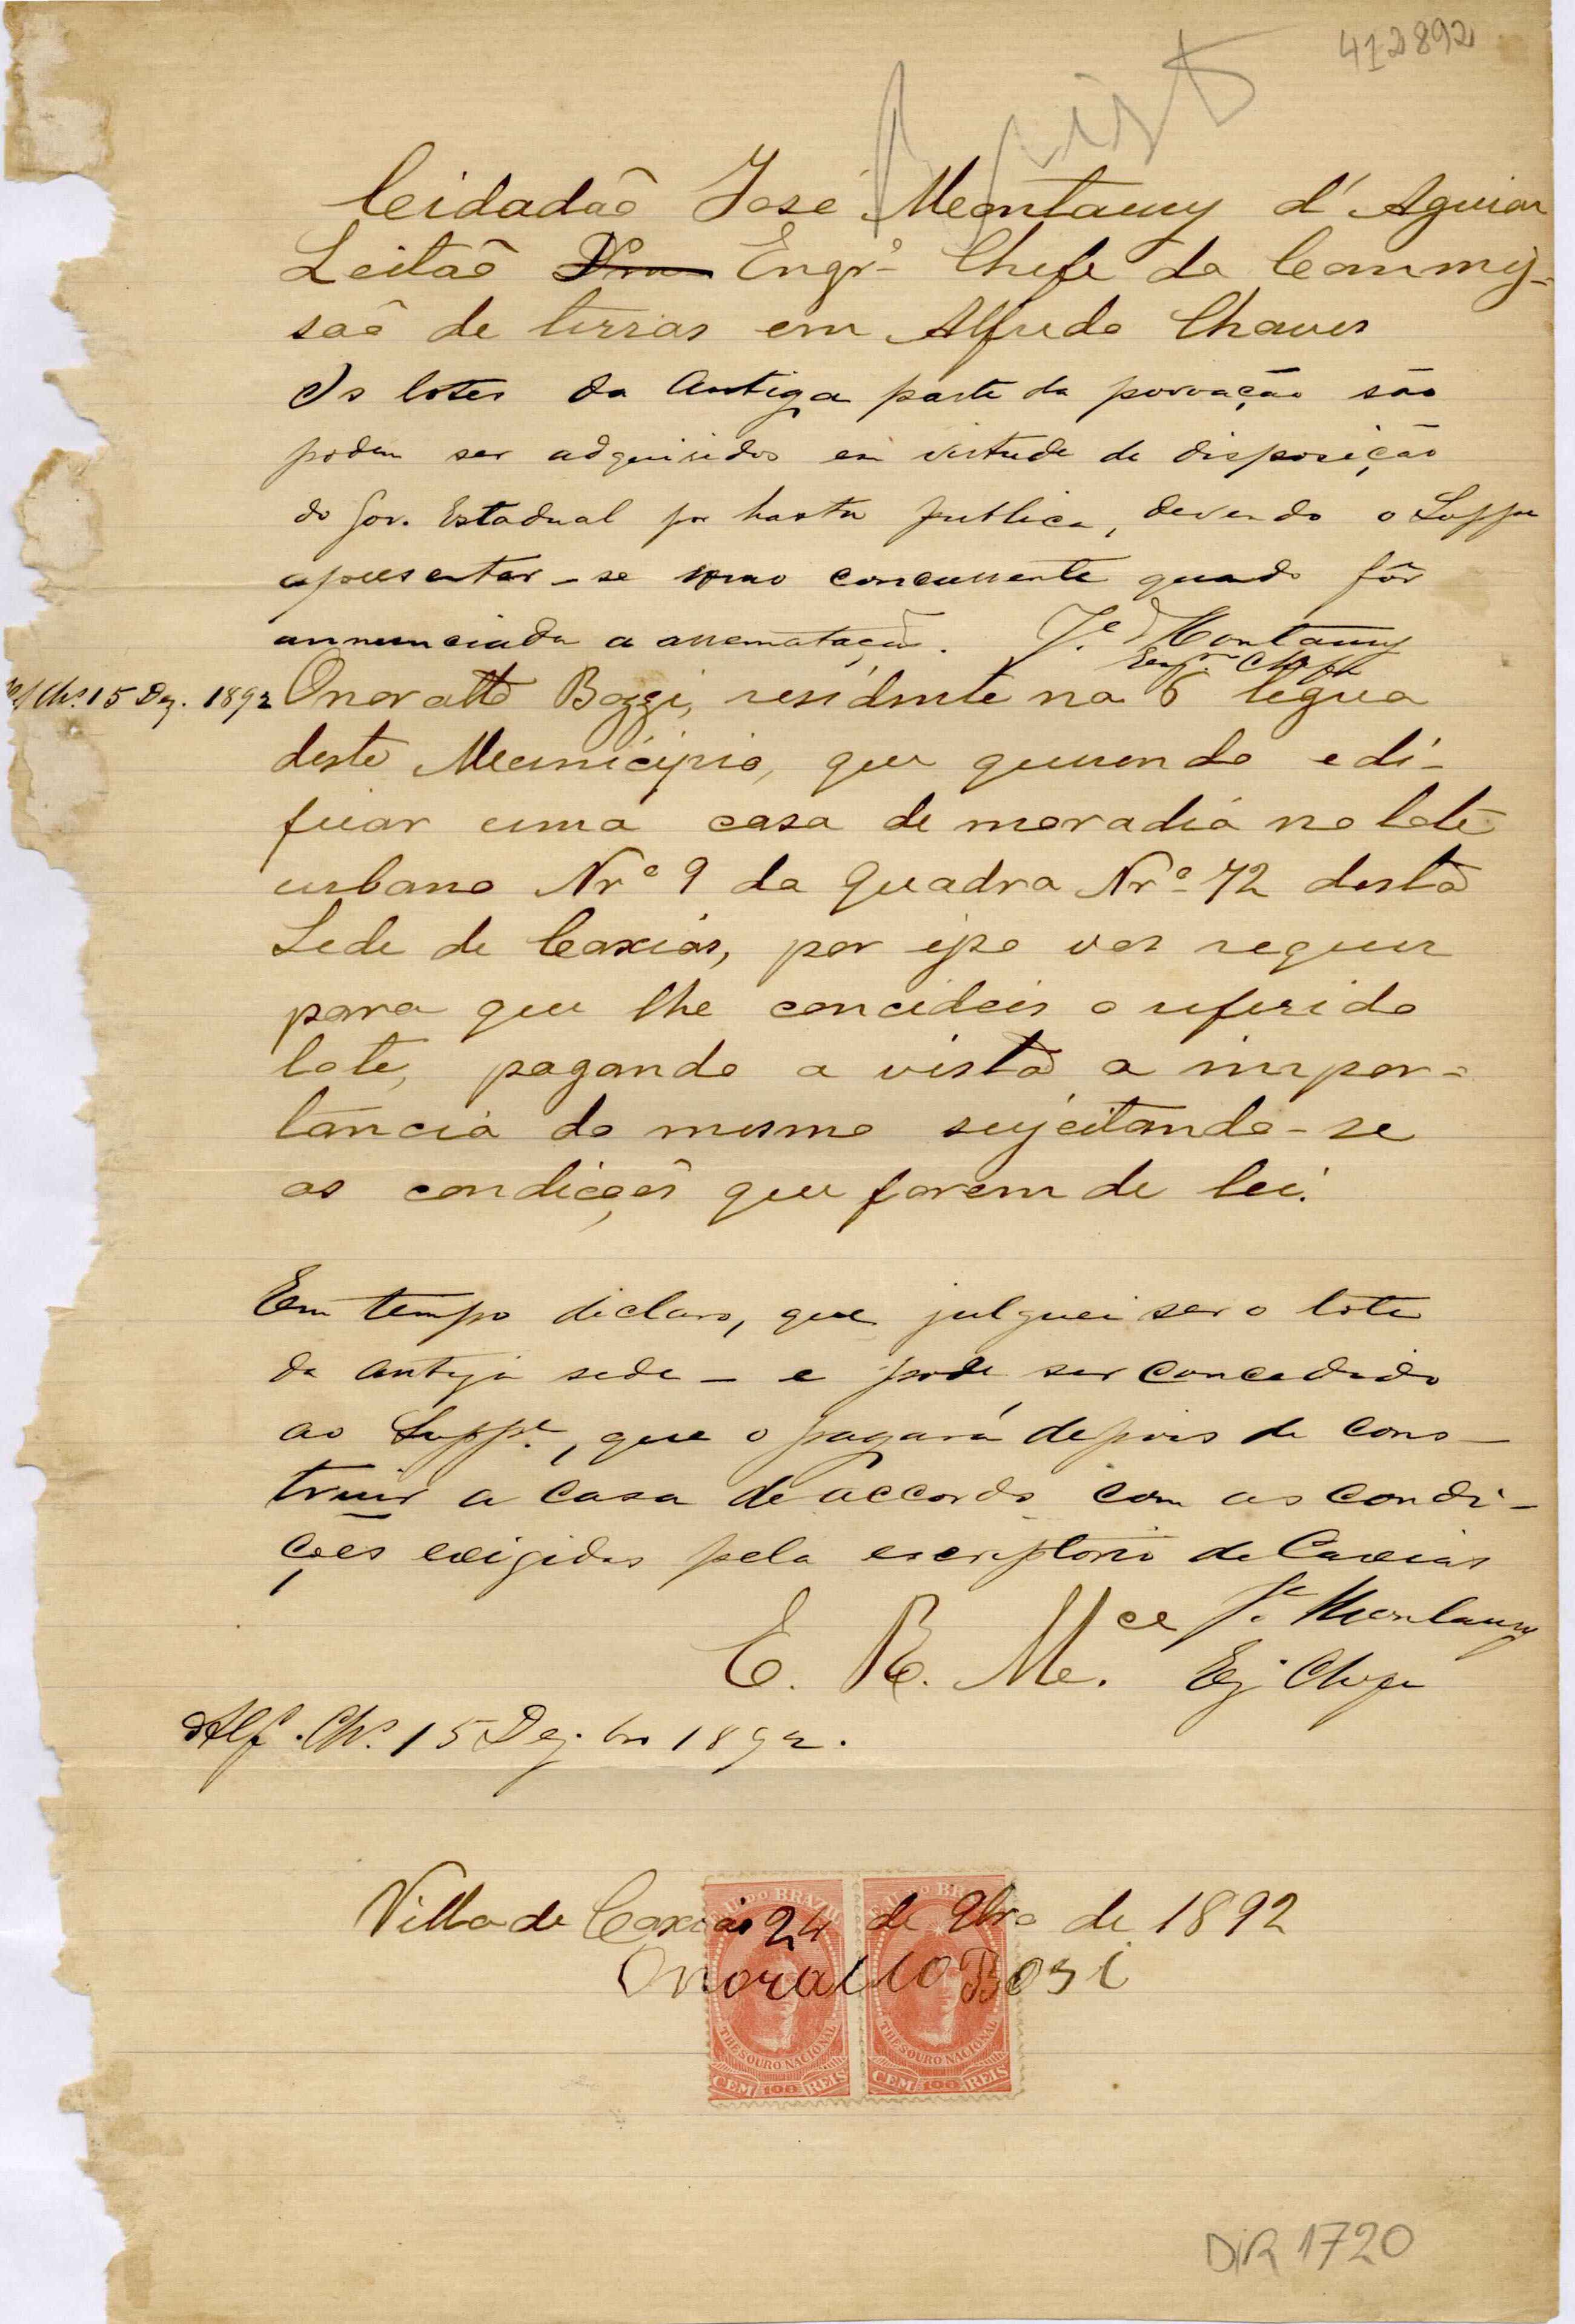 412892
Cidadão José Montaury d'Aguiar
Leitão Engrº Chefe da Commis-
saõ de terras em Alfredo Chaves
Os lotes da Antiga parte da povoação são
podem ser adquiridos em virtude de disposição
do Gov. Estadual por hasta publica, devendo o Suppe
apresentar-se como concurrente quando fôr
annunciada a arrematação. Je Montaury
Engro Chefe
Alf Chs. 15 Dez. 1892
Onoratto Bozzi, residente na 6 legua
deste Municipio, que querendo edi-
ficar uma casa de moradia no lote
urbano Nrº 9 da quadra Nrº 72 desta
Sede de Caxias, por isso vos requer
para que lhe concideis o referido
lote, pagando a vista a impor-
tancia do mesmo sujeitando-se
as condições que forem de lei.
Em tempo declaro, que julguei ser o lote
da antiga sede - e pode ser concedido
ao Suppe, que o pagará depois de cons-
truir a casa de accordo com as condi-
ções exigidas pela escriptorio de Caxias
Je Montaury
E. R. Mce.
Eg Chefe
Alf. Chs. 15 Dezbro 1892.
Villa de Caxias 24 de 9bro de 1892
Onoratto Bosi
E. U. DO BRAZIL
THESOURO NACIONAL
CEM 100 REIS
E. U. DO BRA
THESOURO NACIONAL
CEM 100 REIS
DiR 1720